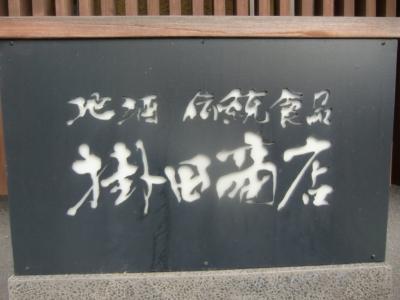 地酒 伝統食品
掛田商店